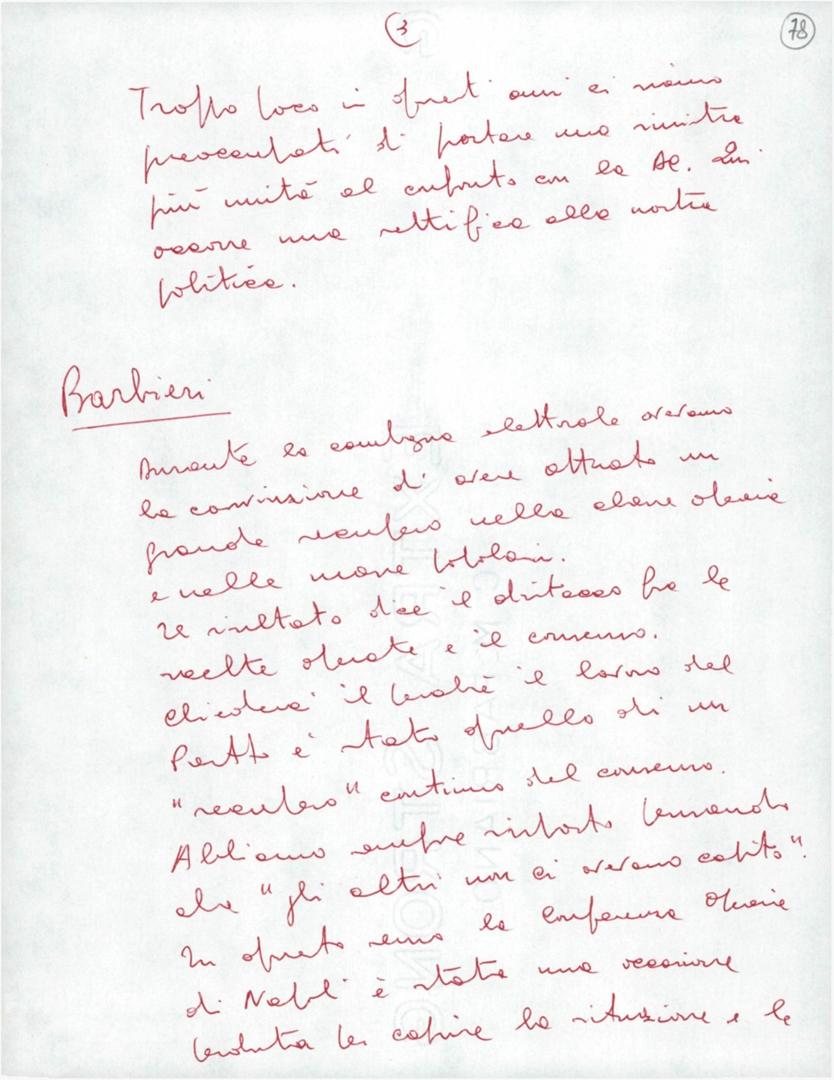 3
78
Troppo poco in questi anni ci siamo
preoccupati di portare una sinistra
più unita al confronto con la DC. Qui
occorre una rettifica alla nostra
politica.
Barbieri
Durante la campagna elettorale avevamo
la convinzione di avere attuato un
grande recupero nella classe operaia
e nelle masse popolari.
Il risultato dice il distacco fra le
scelte operate e il consenso.
Chiedersi il perché il lavoro del
Partito è stato quello di un
"recupero" continuo del consenso.
Abbiamo sempre risposto pensando
che "gli altri non ci avevano capito".
In questo senso la Conferenza Operaia
di Napoli è stata una occasione
perduta per capire la situazione e le